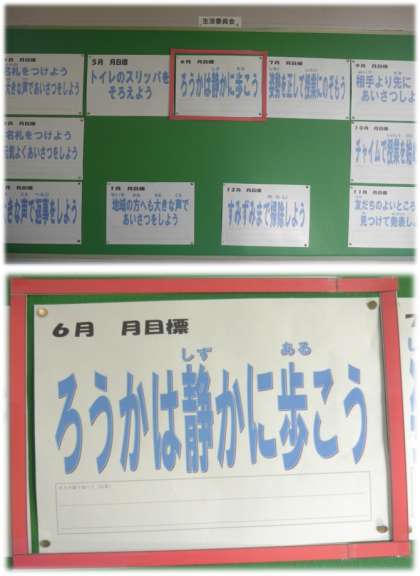 生活委員会
名札をつけよう
大きな声であいさつをしよう
5月 月目標
トイレのスリッパを
そろえよう
6月 月目標
しず ある
ろうかは静かに歩こう
7月 月目標
姿勢を正して授業にのぞもう
月目標
相手より先に
あいさつしよ
名札をつけよう
元気よくあいさつをしよう
10月 月目標
チャイムで授業を始め
月目標
きな声で返事をしよう
月目標
地域の方へも大きな声で
あいさつをしよう
12月 月目標
すみずみまで掃除しよう
11月 月目標
友だちのよいところ
見つけて発表し
6月 月目標
しず ある
ろうかは静かに歩こう